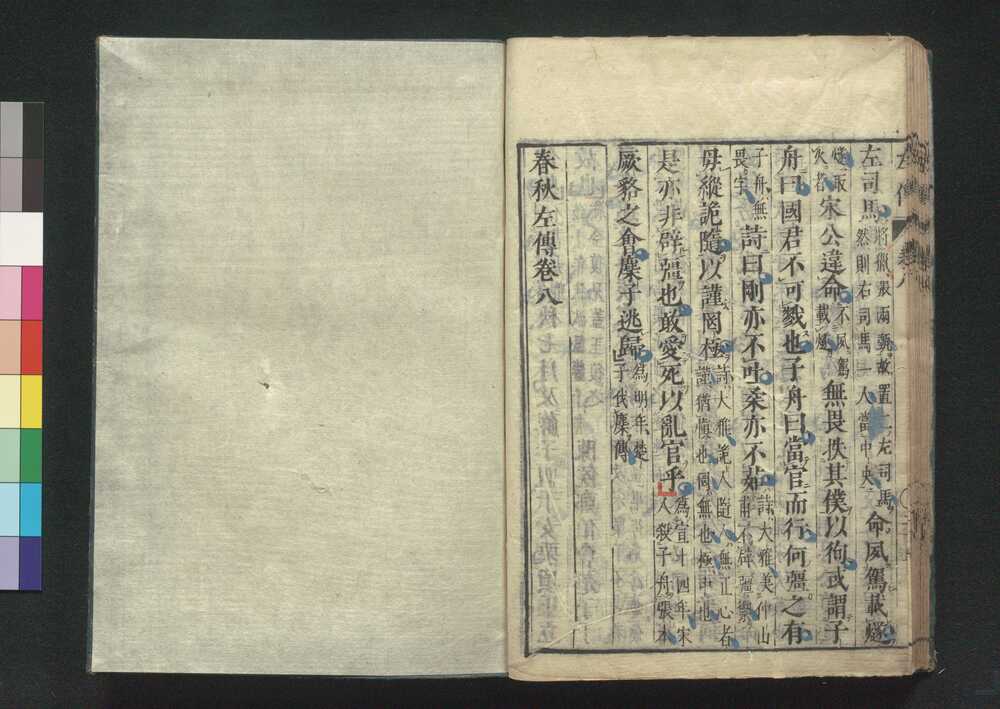 左傳 卷八
左司馬將獵張兩甄故置二左司馬然則右司馬一人當中央命夙駕載燧
燧取火者宋公違命不夙駕載燧無畏抶其僕以徇或謂子
舟曰國君不可戮也子舟曰當官而行何彊之有
子舟無畏字詩曰剛亦不吐柔亦不茹詩大雅美仲山甫不辟彊禦
毋縱詭隨以謹罔極詩大雅詭人隨人無正心者謹猶慎也罔無也極中也
是亦非辟彊也敢愛死以亂官乎爲宣十四年宋人殺子舟張本
厥貉之會麇子逃歸爲明年楚子伐麇傳
春秋左傳卷八